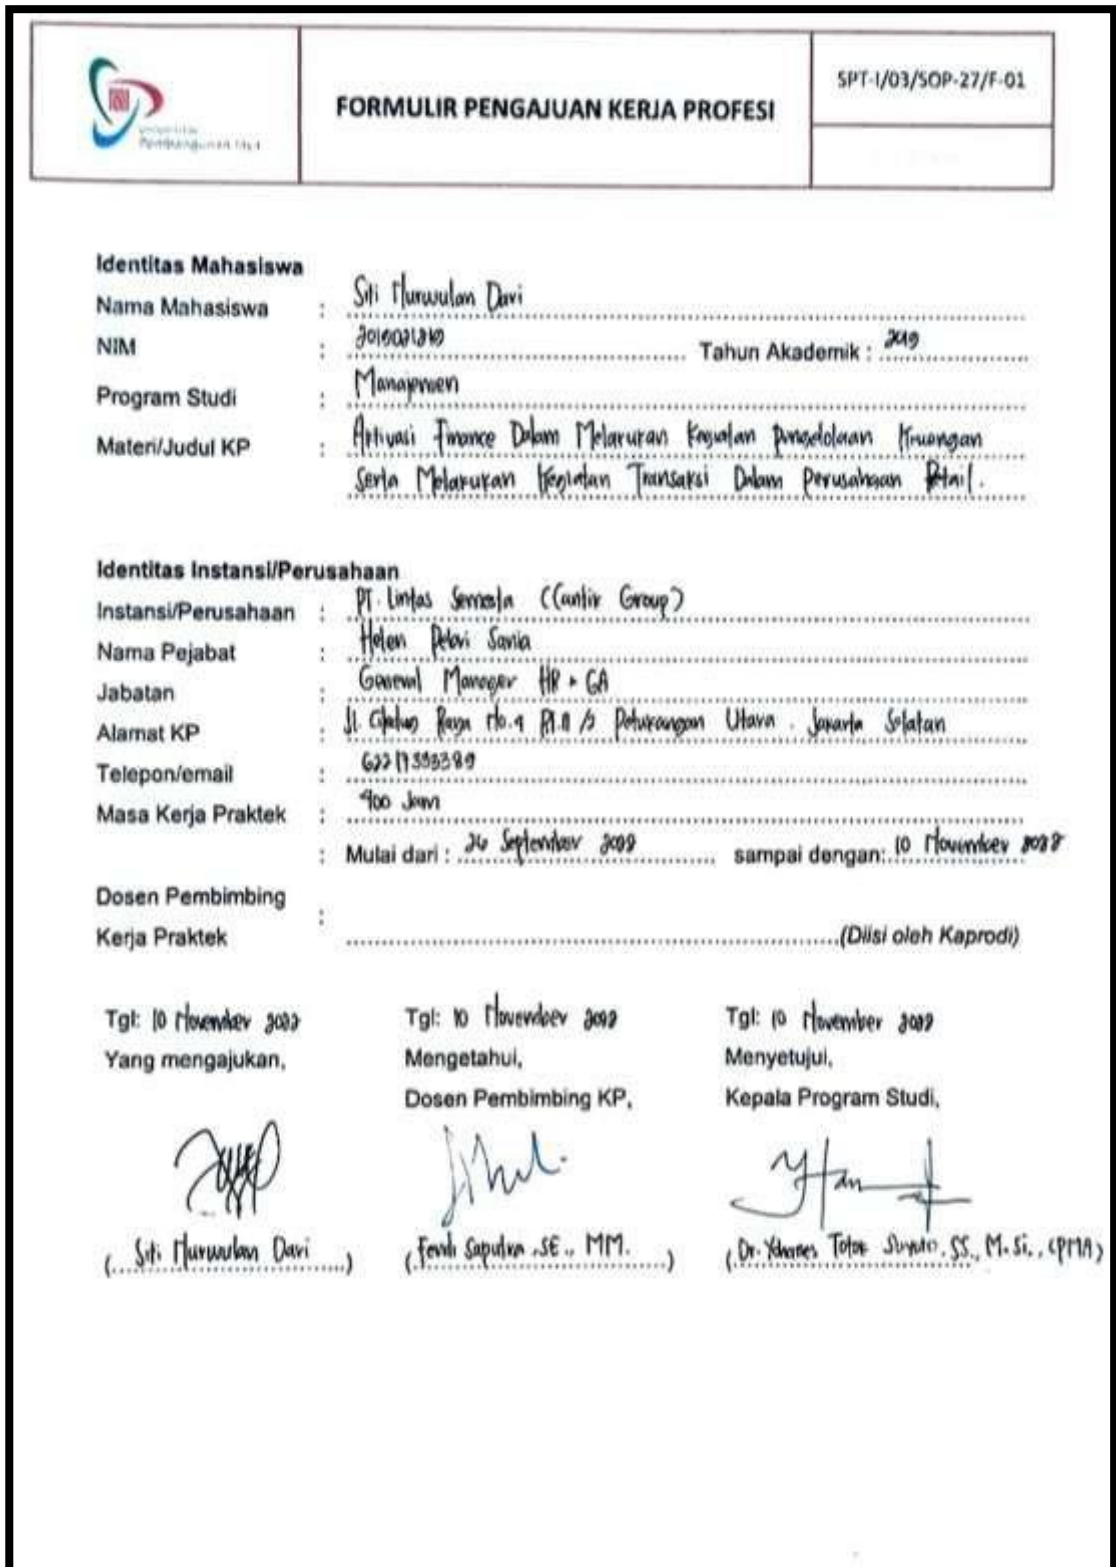 Universitas
Pembangunan Jaya
FORMULIR PENGAJUAN KERJA PROFESI
SPT-I/03/SOP-27/F-01
Identitas Mahasiswa
Nama Mahasiswa : Siti Nurwulan Dari
NIM : Tahun Akademik : 2019
Program Studi : Manajemen
Materi/Judul KP : Aktivasi Finance Dalam Melakukan Kegiatan pengelolaan Keuangan
Serta Melakukan Kegiatan Transaksi Dalam Perusahaan Retail.
Identitas Instansi/Perusahaan
Instansi/Perusahaan : PT. Lintas Semesta (Cantik Group)
Nama Pejabat : Helen Sania
Jabatan : General Manager HR + GA
Alamat KP : Jl. Raya No. Petukangan Utara . Jakarta Selatan
Telepon/email : 
Masa Kerja Praktek : 400 Jam
: Mulai dari : 26 September 2022 sampai dengan: 10 November 2022
Dosen Pembimbing
:
Kerja Praktek (Diisi oleh Kaprodi)
Tgl: 10 November 2022 Tgl: 10 November 2022 Tgl: 10 November 2022
Yang mengajukan, Mengetahui, Menyetujui,
Dosen Pembimbing KP, Kepala Program Studi,
(Siti Nurwulan Dari) (Fendi Saputra, SE., MM.) (Dr. Yohanes Totok Suyoto, SS., M.Si., CPMA)